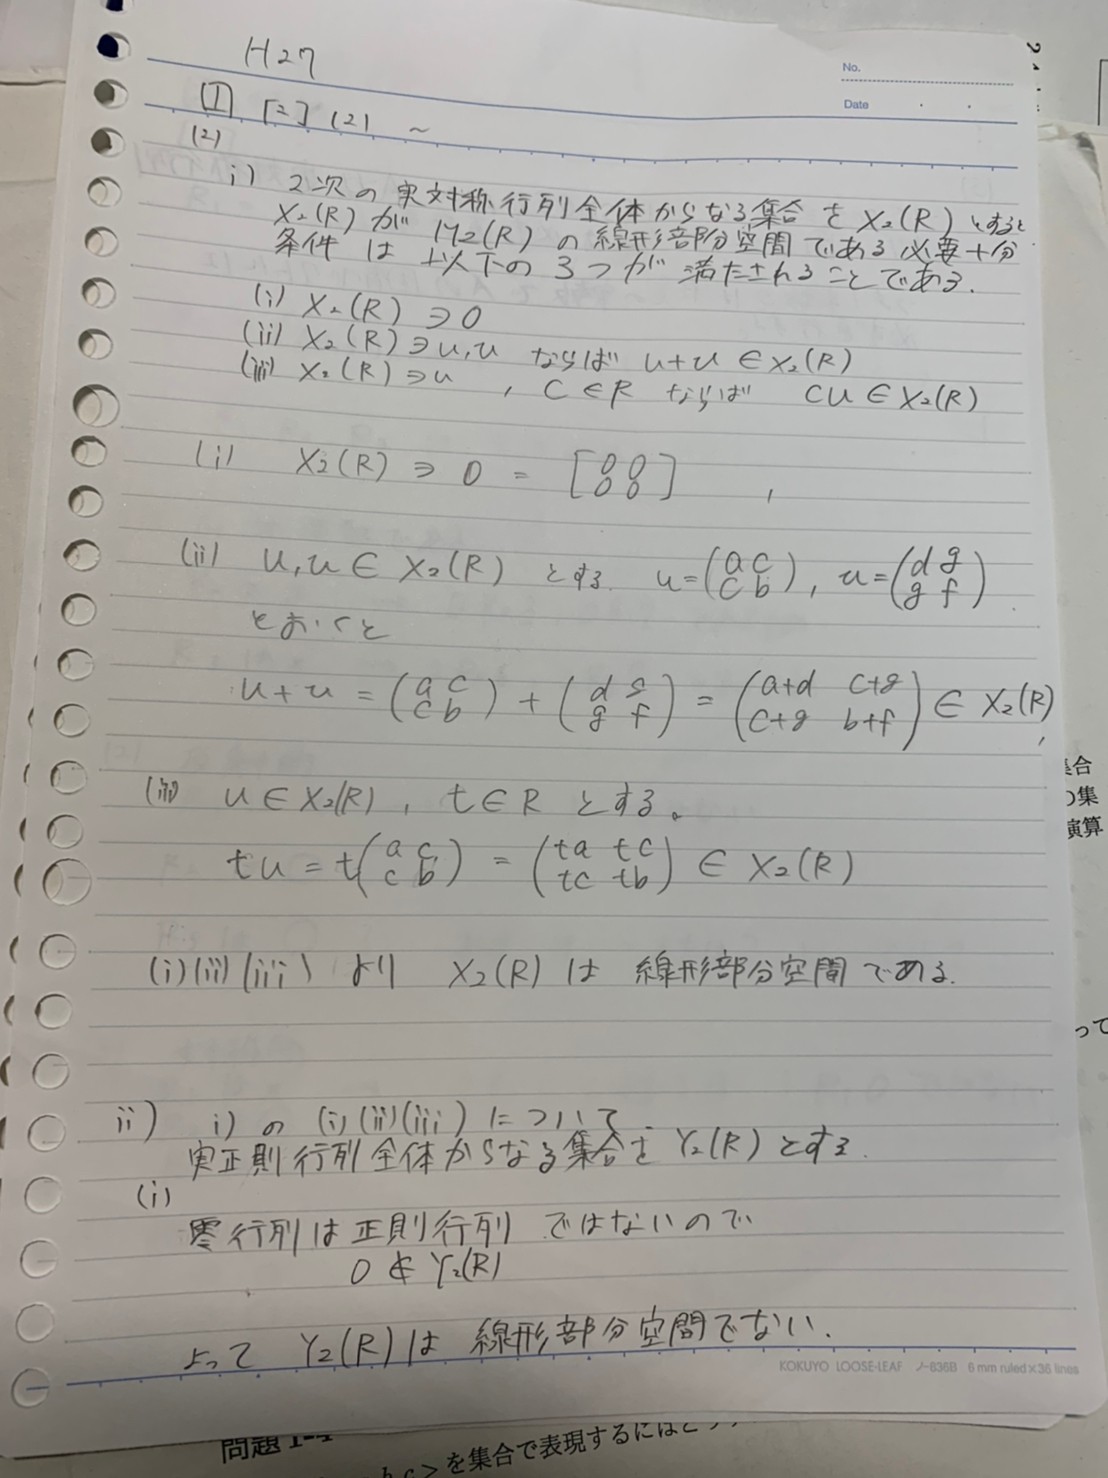 H27
No.
Date
[1] [2] (2) ~
(2)
i) 2次の実対称行列全体からなる集合をX₂(R)とすると
X₂(R)がM₂(R)の線形部分空間である必要十分
条件は以下の3つが満たされることである.
(i) X₂(R)∋0
(ii) X₂(R)∋u,u ならば u+u∈X₂(R)
(iii) X₂(R)∋u , C∈R ならば cu∈X₂(R)
(i) X₂(R)∋0 = [0 0 0 0] ,
(ii) u,u∈X₂(R) とする. u=(a c c b), u=(d g g f).
とおくと
u+u=(a c c b)+(d g g f)=(a+d c+g c+g b+f)∈X₂(R),
(iii) u∈X₂(R), t∈R とする。
tu=t(a c c b)=(ta tc tc tb)∈X₂(R)
(i)(ii)(iii)より X₂(R)は線形部分空間である.
ii) i)の(i)(ii)(iii)について
実正則行列全体からなる集合をY₂(R)とする.
(i)
零行列は正則行列ではないので
0∉Y₂(R)
よって Y₂(R)は線形部分空間でない.
KOKUYO LOOSE-LEAF ノ-836B 6 mm ruled×36 lines
集合
の集
演算
って
問題 1-1
b,c>を集合で表現するにはど